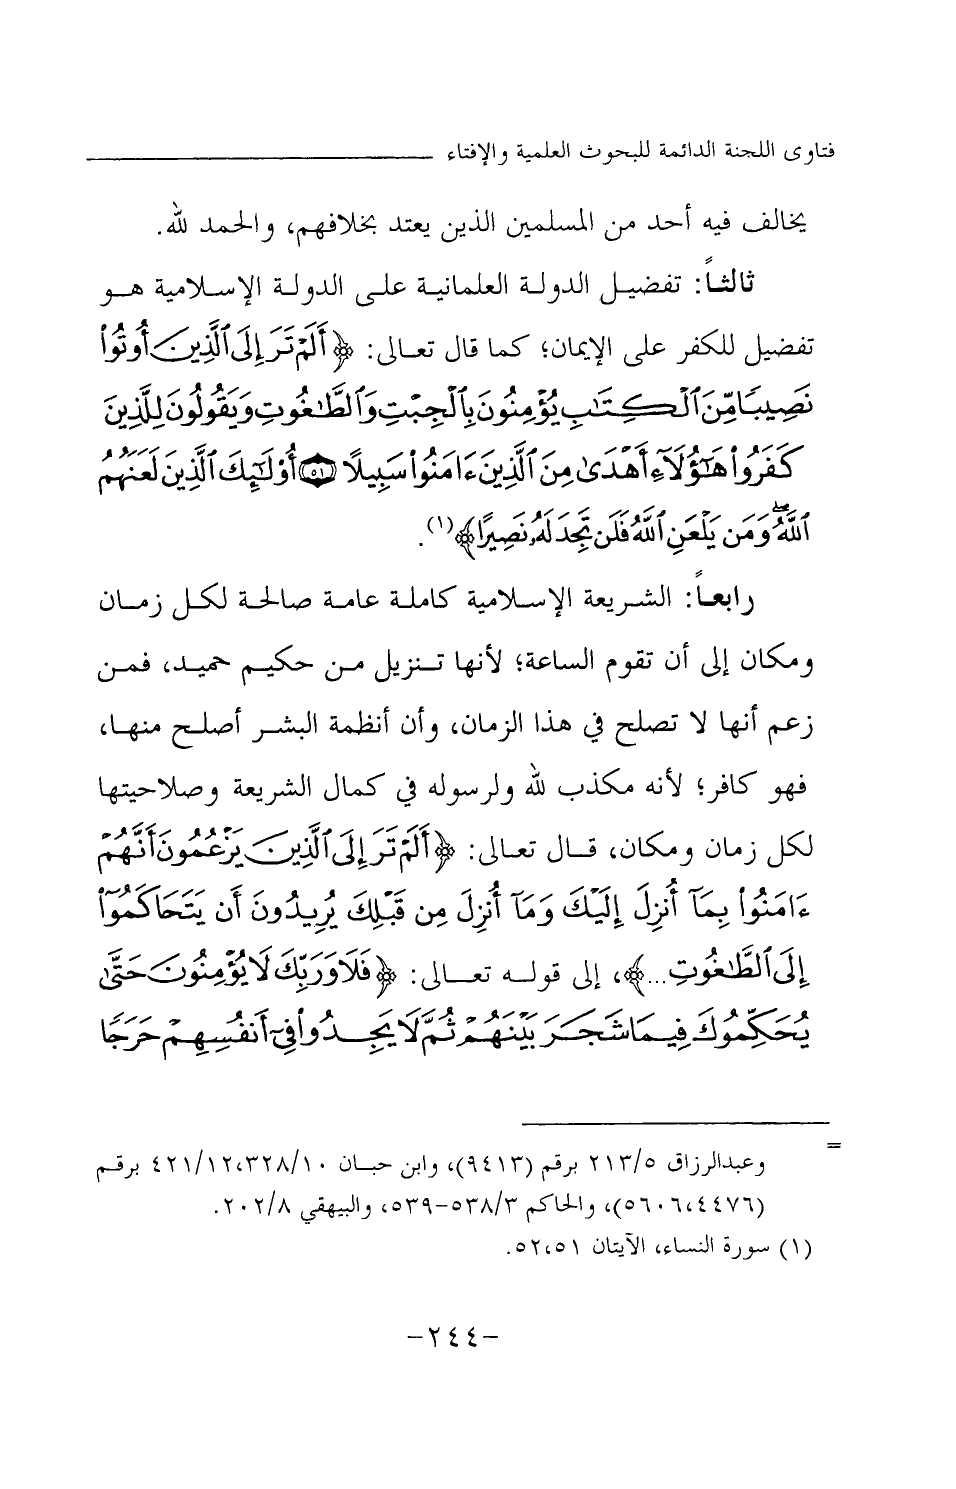 فتاوى اللجنة الدائمة للبحوث العلمية والإفتاء
يخالف فيه أحد من المسلمين الذين يعتد بخلافهم، والحمد لله.
ثالثاً: تفضيل الدولة العلمانية على الدولة الإسلامية هو
تفضيل للكفر على الإيمان؛ كما قال تعالى: ﴿أَلَمْ تَرَ إِلَى ٱلَّذِينَ أُوتُوا۟
نَصِيبًا مِّنَ ٱلْكِتَٰبِ يُؤْمِنُونَ بِٱلْجِبْتِ وَٱلطَّٰغُوتِ وَيَقُولُونَ لِلَّذِينَ
كَفَرُوا۟ هَٰٓؤُلَآءِ أَهْدَىٰ مِنَ ٱلَّذِينَ ءَامَنُوا۟ سَبِيلًا ۝٥١ أُو۟لَٰٓئِكَ ٱلَّذِينَ لَعَنَهُمُ
ٱللَّهُ ۖ وَمَن يَلْعَنِ ٱللَّهُ فَلَن تَجِدَ لَهُۥ نَصِيرًا﴾(١).
رابعاً: الشريعة الإسلامية كاملة عامة صالحة لكل زمان
ومكان إلى أن تقوم الساعة؛ لأنها تنزيل من حكيم حميد، فمن
زعم أنها لا تصلح في هذا الزمان، وأن أنظمة البشر أصلح منها،
فهو كافر؛ لأنه مكذب لله ولرسوله في كمال الشريعة وصلاحيتها
لكل زمان ومكان، قال تعالى: ﴿أَلَمْ تَرَ إِلَى ٱلَّذِينَ يَزْعُمُونَ أَنَّهُمْ
ءَامَنُوا۟ بِمَآ أُنزِلَ إِلَيْكَ وَمَآ أُنزِلَ مِن قَبْلِكَ يُرِيدُونَ أَن يَتَحَاكَمُوٓا۟
إِلَى ٱلطَّٰغُوتِ...﴾، إلى قوله تعالى: ﴿فَلَا وَرَبِّكَ لَا يُؤْمِنُونَ حَتَّىٰ
يُحَكِّمُوكَ فِيمَا شَجَرَ بَيْنَهُمْ ثُمَّ لَا يَجِدُوا۟ فِىٓ أَنفُسِهِمْ حَرَجًا
= وعبدالرزاق ٢١٣/٥ برقم (٩٤١٣)، وابن حبان ٣٢٨/١٠، ٤٢١/١٢ برقم
(٤٤٧٦، ٥٦٠٦)، والحاكم ٥٣٨/٣-٥٣٩، والبيهقي ٢٠٢/٨.
(١) سورة النساء، الآيتان ٥١، ٥٢.
-٢٤٤-